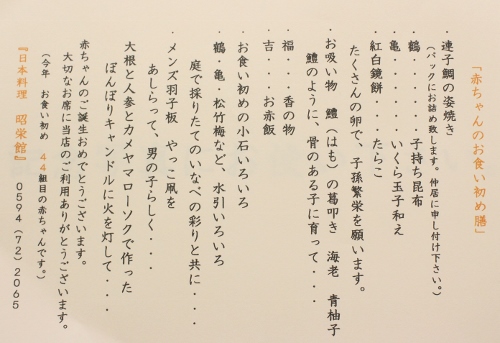 「赤ちゃんのお食い初め膳」
・連子鯛の姿焼き
（パックにお詰め致します。仲居に申し付け下さい。）
・鶴・・・・・・子持ち昆布
・亀・・・・・・いくら玉子和え
・紅白鏡餅・・・・たらこ
たくさんの卵で、子孫繁栄を願います。
・お吸い物　鱧（はも）の葛叩き　海老　青柚子
鱧のように、骨のある子に育って・・・・
・福・・・香の物
・吉・・・お赤飯
・お食い初めの小石いろいろ
・鶴・亀・松竹梅など　水引いろいろ
庭で採りたてのいなべの彩りと共に・・・
・メンズ羽子板　やっこ凧を
あしらって、男の子らしく・・・
大根と人参とカメヤマローソクで作った
ぼんぼりキャンドルに火を灯して・・・
赤ちゃんのご誕生おめでとうございます。
大切なお席に当店のご利用ありがとうございます。
（今年　お食い初め　４４組目の赤ちゃんです。）
『日本料理　昭栄館』　０５９４（７２）２０６５